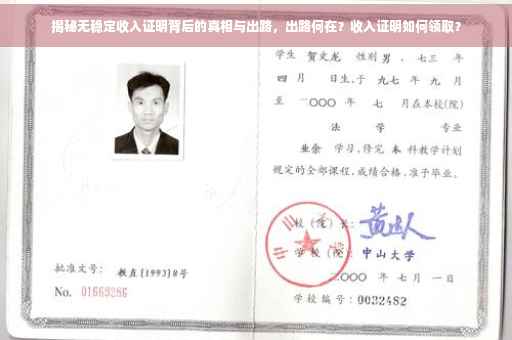 揭秘无稳定收入证明背后的真相与出路，出路何在？收入证明如何领取？
学生 贺文龙 性别 男，七三 年
四 月 日生，于 九七 年 九 月
至 二〇〇〇 年 七 月在本校(院)
法 学 专业
业余 学习，修完 本 科教学计划
规定的全部课程，成绩合格，准予毕业。
校(院)长：
学校(院)：中山大学
批准文号： 教直[1993]8号
二〇〇〇 年 七 月 一 日
No. 01669286
学校编号：0032482